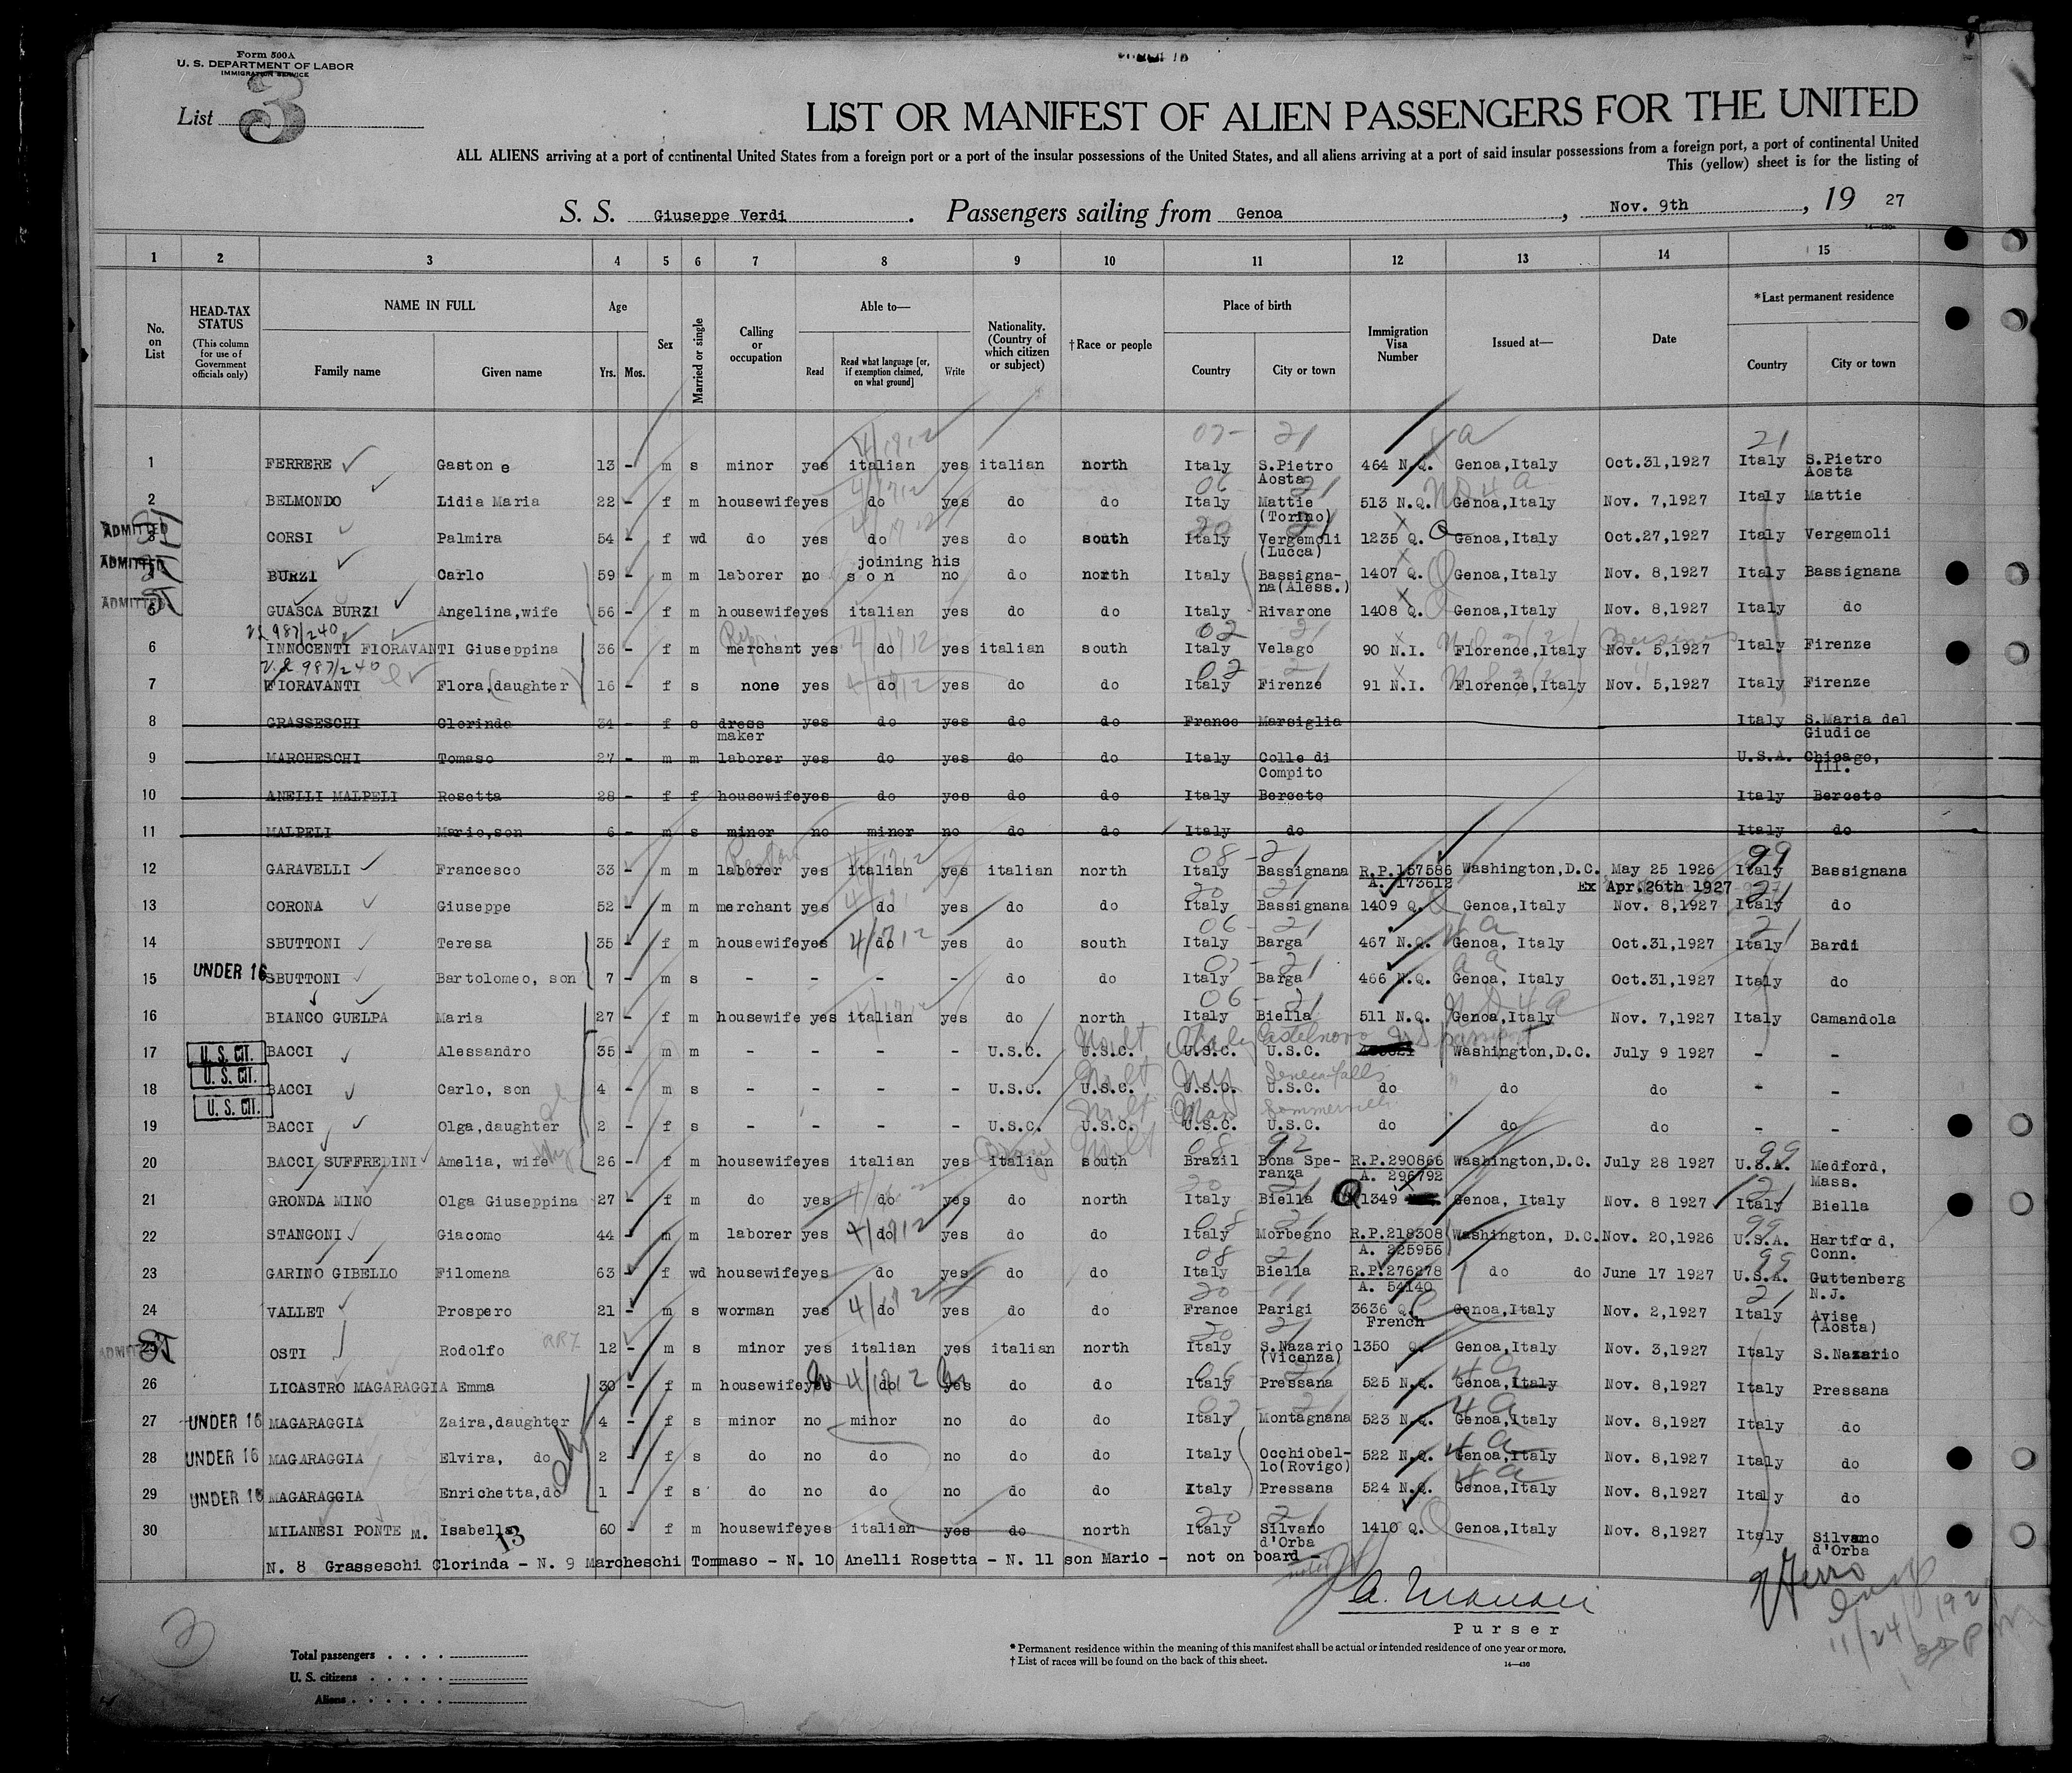 Form 500A
U. S. DEPARTMENT OF LABOR
IMMIGRATION SERVICE
List 3
LIST OR MANIFEST OF ALIEN PASSENGERS FOR THE UNITED
ALL ALIENS arriving at a port of continental United States from a foreign port or a port of the insular possessions of the United States, and all aliens arriving at a port of said insular possessions from a foreign port, a port of continental United
This (yellow) sheet is for the listing of
S. S. Giuseppe Verdi . Passengers sailing from Genoa , Nov. 9th , 19 27
1 2 3 4 5 6 7 8 9 10 11 12 13 14 15
No. on List
HEAD-TAX STATUS (This column for use of Government officials only)
NAME IN FULL Family name Given name
Age Yrs. Mos.
Sex
Married or single
Calling or occupation
Able to— Read Read what language [or, if exemption claimed, on what ground] Write
Nationality. (Country of which citizen or subject)
†Race or people
Place of birth Country City or town
Immigration Visa Number
Issued at—
Date
*Last permanent residence Country City or town
1 FERRERE Gastone 13 - m s minor yes italian yes italian north Italy S.Pietro Aosta 464 N.Q. Genoa,Italy Oct.31,1927 Italy S.Pietro Aosta
2 BELMONDO Lidia Maria 22 - f m housewife yes do yes do do Italy Mattie (Torino) 513 N.Q. Genoa,Italy Nov. 7,1927 Italy Mattie
ADMITTED 3 CORSI Palmira 54 - f wd do yes do yes do south Italy Vergemoli (Lucca) 1235 Q. Genoa,Italy Oct.27,1927 Italy Vergemoli
ADMITTED BURZI Carlo 59 - m m laborer no joining his son no do north Italy Bassigna-na(Aless.) 1407 Q. Genoa,Italy Nov. 8,1927 Italy Bassignana
ADMITTED 5 GUASCA BURZI Angelina,wife 56 - f m housewife yes italian yes do do Italy Rivarone 1408 Q. Genoa,Italy Nov. 8,1927 Italy do
987/240
6 INNOCENTI FIORAVANTI Giuseppina 36 - f m merchant yes do yes italian south Italy Velago 90 N.I. Florence,Italy Nov. 5,1927 Italy Firenze
987/240
7 FIORAVANTI Flora,(daughter) 16 - f s none yes do yes do do Italy Firenze 91 N.I. Florence,Italy Nov. 5,1927 Italy Firenze
8 GRASSESCHI Clorinda 34 - f s dress maker yes do yes do do France Marsiglia Italy S.Maria del Giudice
9 MARCHESCHI Tomaso 27 - m m laborer yes do yes do do Italy Colle di Compito U.S.A. Chicago, Ill.
10 ANELLI MALPELI Rosetta 28 - f f housewife yes do yes do do Italy Berceto Italy Berceto
11 MALPELI Mario,son 6 - m s minor no minor no do do Italy do Italy do
12 GARAVELLI Francesco 33 - m m laborer yes italian yes italian north Italy Bassignana R.P.157586 A. 173612 Washington,D.C. May 25 1926 Ex Apr.26th 1927 Italy Bassignana
13 CORONA Giuseppe 52 - m m merchant yes do yes do do Italy Bassignana 1409 Q. Genoa,Italy Nov. 8,1927 Italy do
14 SBUTTONI Teresa 35 - f m housewife yes do yes do south Italy Barga 467 N.Q. Genoa, Italy Oct.31,1927 Italy Bardi
15 UNDER 16 SBUTTONI Bartolomeo, son 7 - m s - - - - do do Italy Barga 466 N.Q. Genoa, Italy Oct.31,1927 Italy do
16 BIANCO GUELPA Maria 27 - f m housewife yes italian yes do north Italy Biella 511 N.Q. Genoa,Italy Nov. 7,1927 Italy Camandola
17 U. S. CIT. BACCI Alessandro 35 - m m - - - - U.S.C. U.S.C. U.S.C. U.S.C. Washington,D.C. July 9 1927 - -
18 U. S. CIT. BACCI Carlo, son 4 - m s - - - - U.S.C. U.S.C. U.S.C. U.S.C. do do do - -
19 U. S. CIT. BACCI Olga,daughter 2 - f s - - - - U.S.C. U.S.C. U.S.C. U.S.C. do do do - -
20 BACCI SUFFREDINI Amelia, wife 26 - f m housewife yes italian yes italian south Brazil Bona Spe-ranza R.P.290866 A. 296792 Washington,D.C. July 28 1927 U.S.A. Medford, Mass.
21 GRONDA MINO Olga Giuseppina 27 - f m do yes do yes do north Italy Biella Q 1349 Genoa, Italy Nov. 8 1927 Italy Biella
22 STANGONI Giacomo 44 - m m laborer yes do yes do do Italy Morbegno R.P.218308 A. 225956 Washington, D.C. Nov. 20,1926 U.S.A. Hartford, Conn.
23 GARINO GIBELLO Filomena 63 - f wd housewife yes do yes do do Italy Biella R.P.276278 A. 54140 do do June 17 1927 U.S.A. Guttenberg N.J.
24 VALLET Prospero 21 - m s worman yes do yes do do France Parigi 3636 Q. French Genoa,Italy Nov. 2,1927 Italy Avise (Aosta)
OSTI Rodolfo 12 - m s minor yes italian yes italian north Italy S.Nazario (Vicenza) 1350 Q. Genoa,Italy Nov. 3,1927 Italy S.Nazario
26 LICASTRO MAGARAGGIA Emma 30 - f m housewife yes do yes do do Italy Pressana 525 N.Q. Genoa,Italy Nov. 8,1927 Italy Pressana
27 UNDER 16 MAGARAGGIA Zaira,daughter 4 - f s minor no minor no do do Italy Montagnana 523 N.Q. Genoa,Italy Nov. 8,1927 Italy do
28 UNDER 16 MAGARAGGIA Elvira, do 2 - f s do no do no do do Italy Occhiobel-lo(Rovigo) 522 N.Q. Genoa,Italy Nov. 8,1927 Italy do
29 UNDER 16 MAGARAGGIA Enrichetta,do 1 - f s do no do no do do Italy Pressana 524 N.Q. Genoa,Italy Nov. 8,1927 Italy do
30 MILANESI PONTE M. Isabella 60 - f m housewife yes italian yes do north Italy Silvano d'Orba 1410 Q. Genoa,Italy Nov. 8,1927 Italy Silvano d'Orba
13
N. 8 Grasseschi Clorinda - N. 9 Marcheschi Tommaso - N. 10 Anelli Rosetta - N. 11 son Mario - not on board -
Purser
Total passengers . . . .
U. S. citizens . . . . .
Aliens . . . . . .
* Permanent residence within the meaning of this manifest shall be actual or intended residence of one year or more.
† List of races will be found on the back of this sheet.
14—430
11/24/192